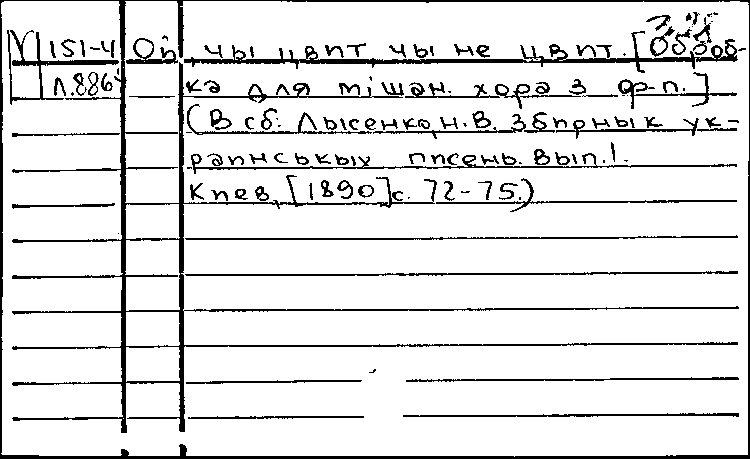 М 151-4 Ой, чы цвит, чы не цвит. [Оброб-
Л.886 ка для мішан. хора з ф-п.]
(В сб: Лысенко, Н.В. Збирнык ук-
раинськых писень. Вып.I.
Киев, [1890] с. 72-75.)